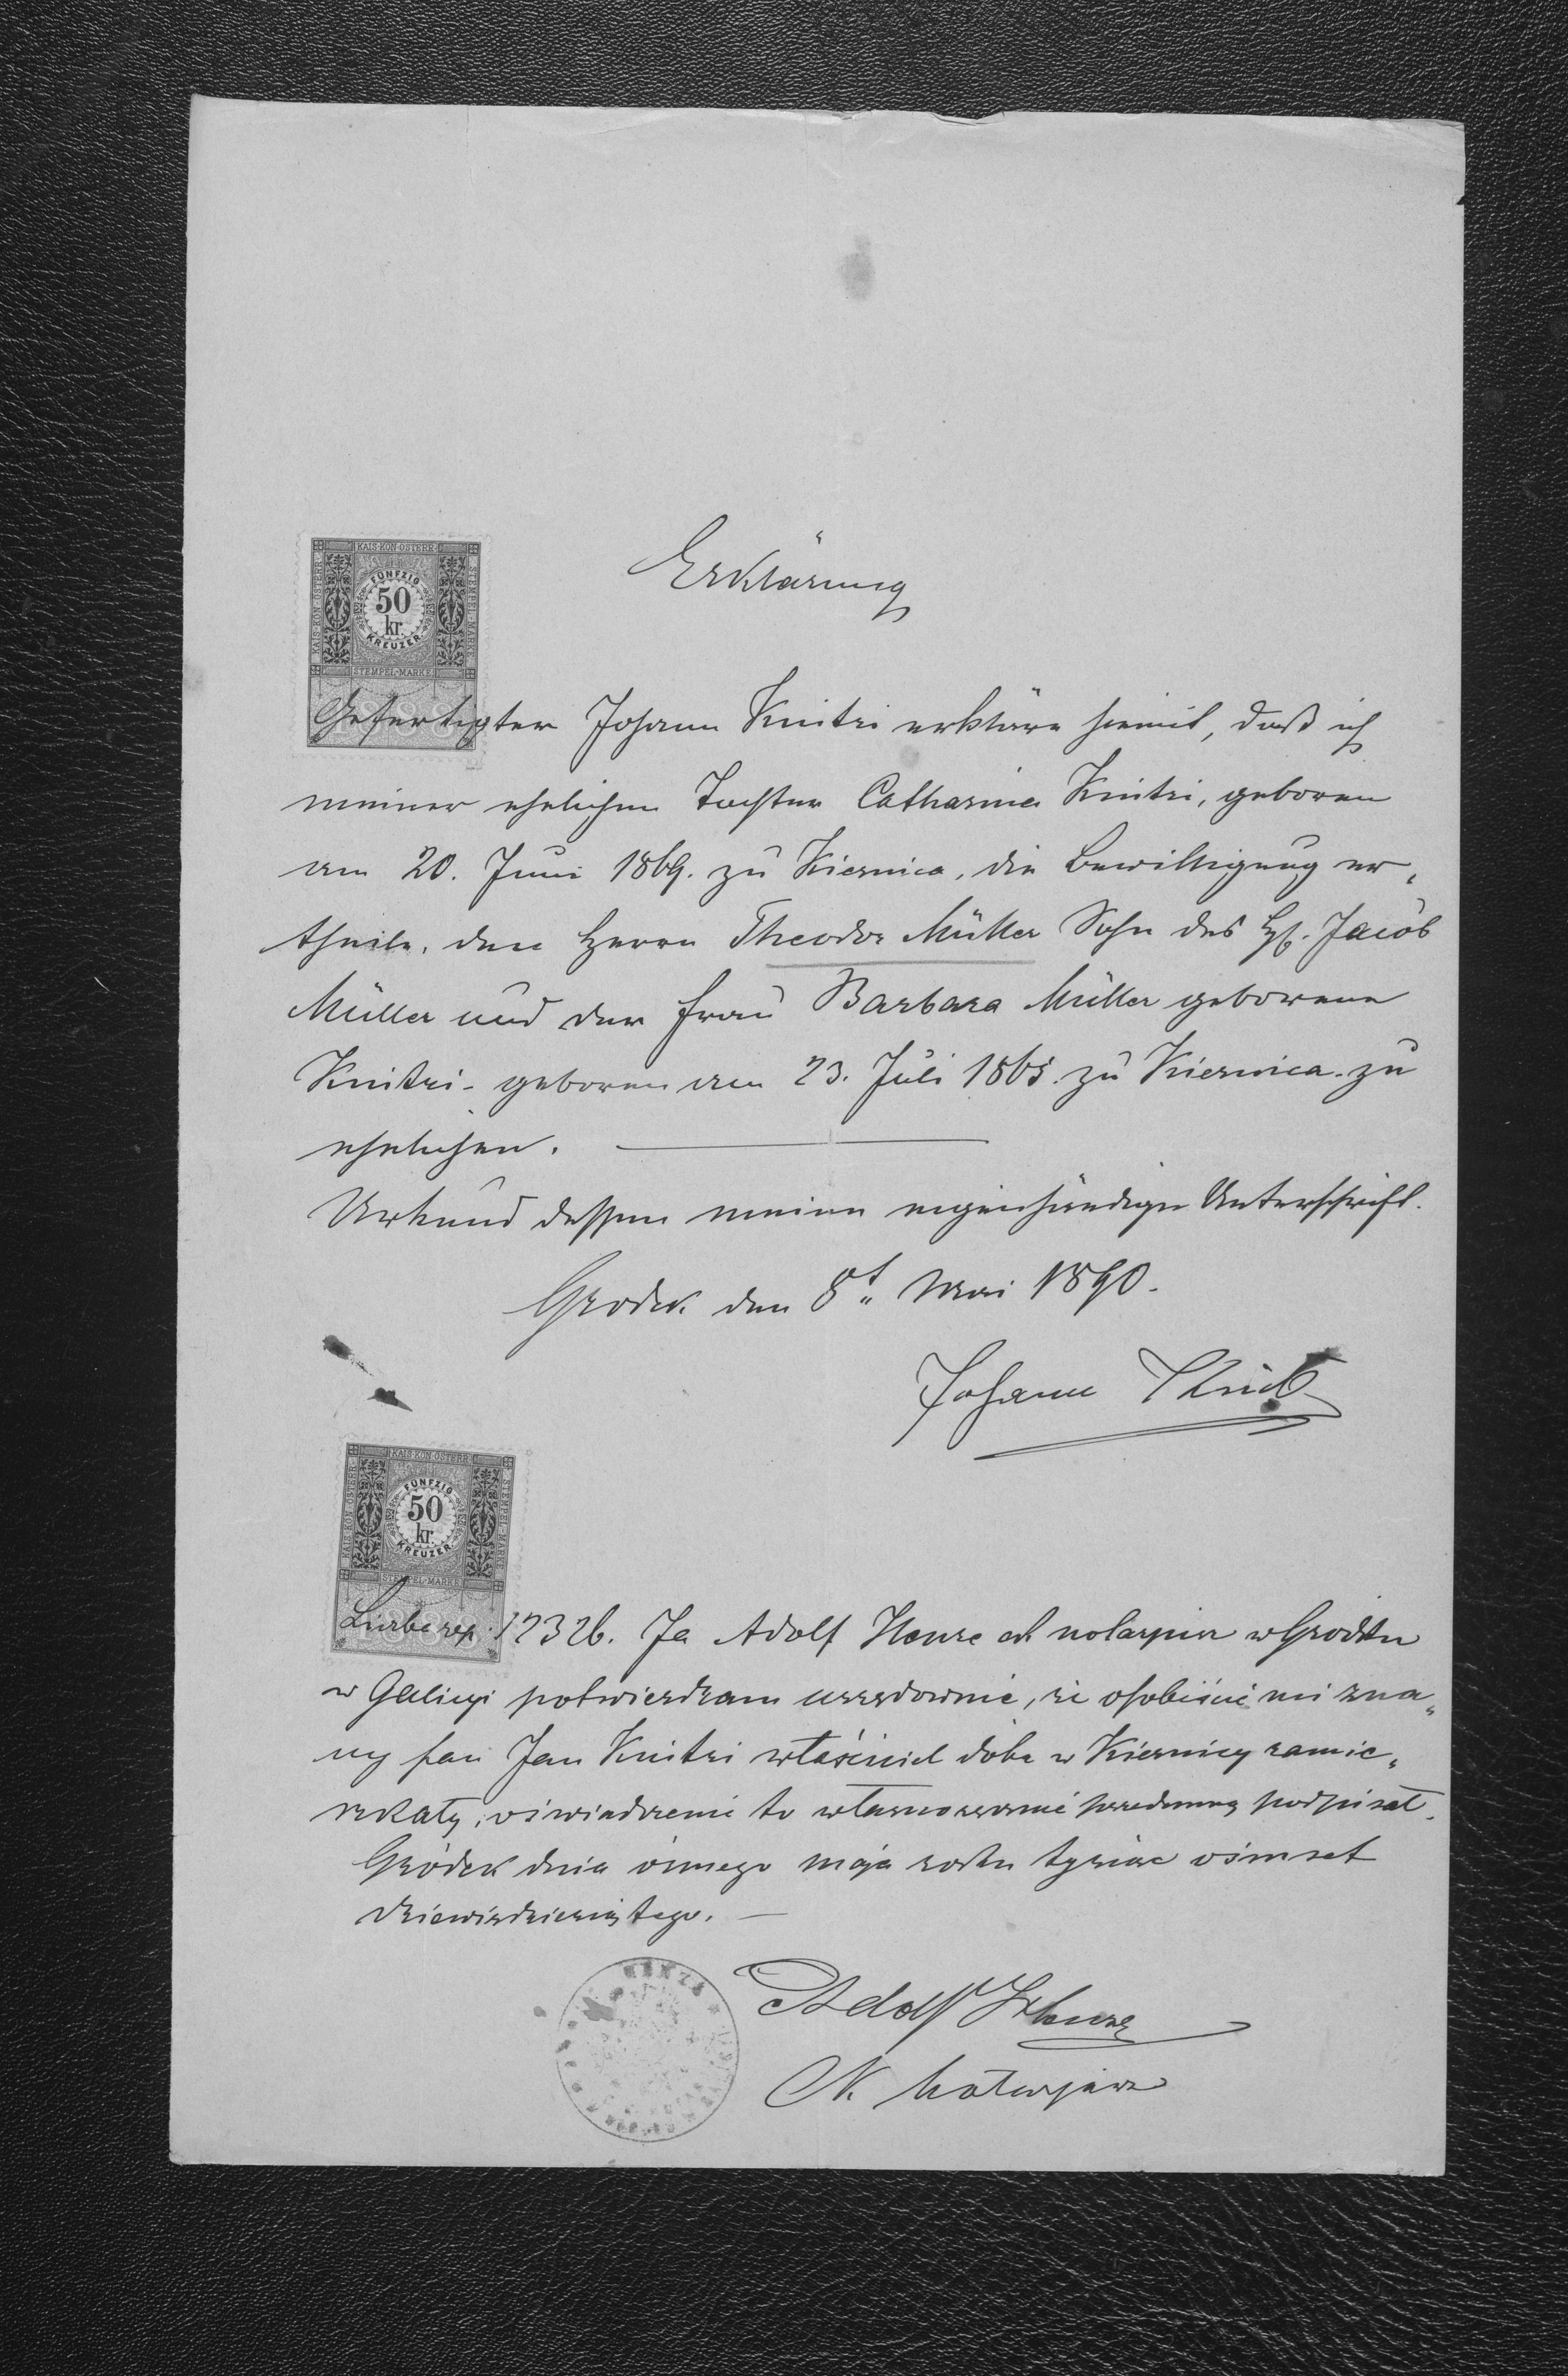 KAIS. KÖN. ÖSTERR.
FÜNFZIG
50
kr.
KREUZER
STEMPEL-MARKE
Erklärung
Gefertigter Johann Knitri erkläre hiemit, daß ich
meiner ehelichen Tochter Catharina Knitri, geboren
am 20. Juni 1869. zu Kiernica, die Bewilligung er„
theile, den Herrn Theodor Müller Sohn des H. Jacob
Müller und der Frau Barbara Müller geborene
Knitri - geboren am 23. Juli 1865. zu Kiernica. zu
ehelichen.
Urkund dessen meine eigenhändige Unterschrift.
Grodek den 8t. Mai 1890.
Johann
KAIS. KÖN. ÖSTERR.
FÜNFZIG
50
kr.
KREUZER
STEMPEL-MARKE
Liczba rep. 12326. Ja Adolf notaryusz w Gródku
w Galicyi potwierdzam urzędownie, że osobiście mi zna„
ny pan Jan Knitri właściciel dóbr w Kiernicy zamie„
szkały, oświadczenie to własnoręcznie przedemną podpisał.
Gródek dnia ósmego maja roku tysiąc ośmset
dziewięćdziesiątego. —
Adolf